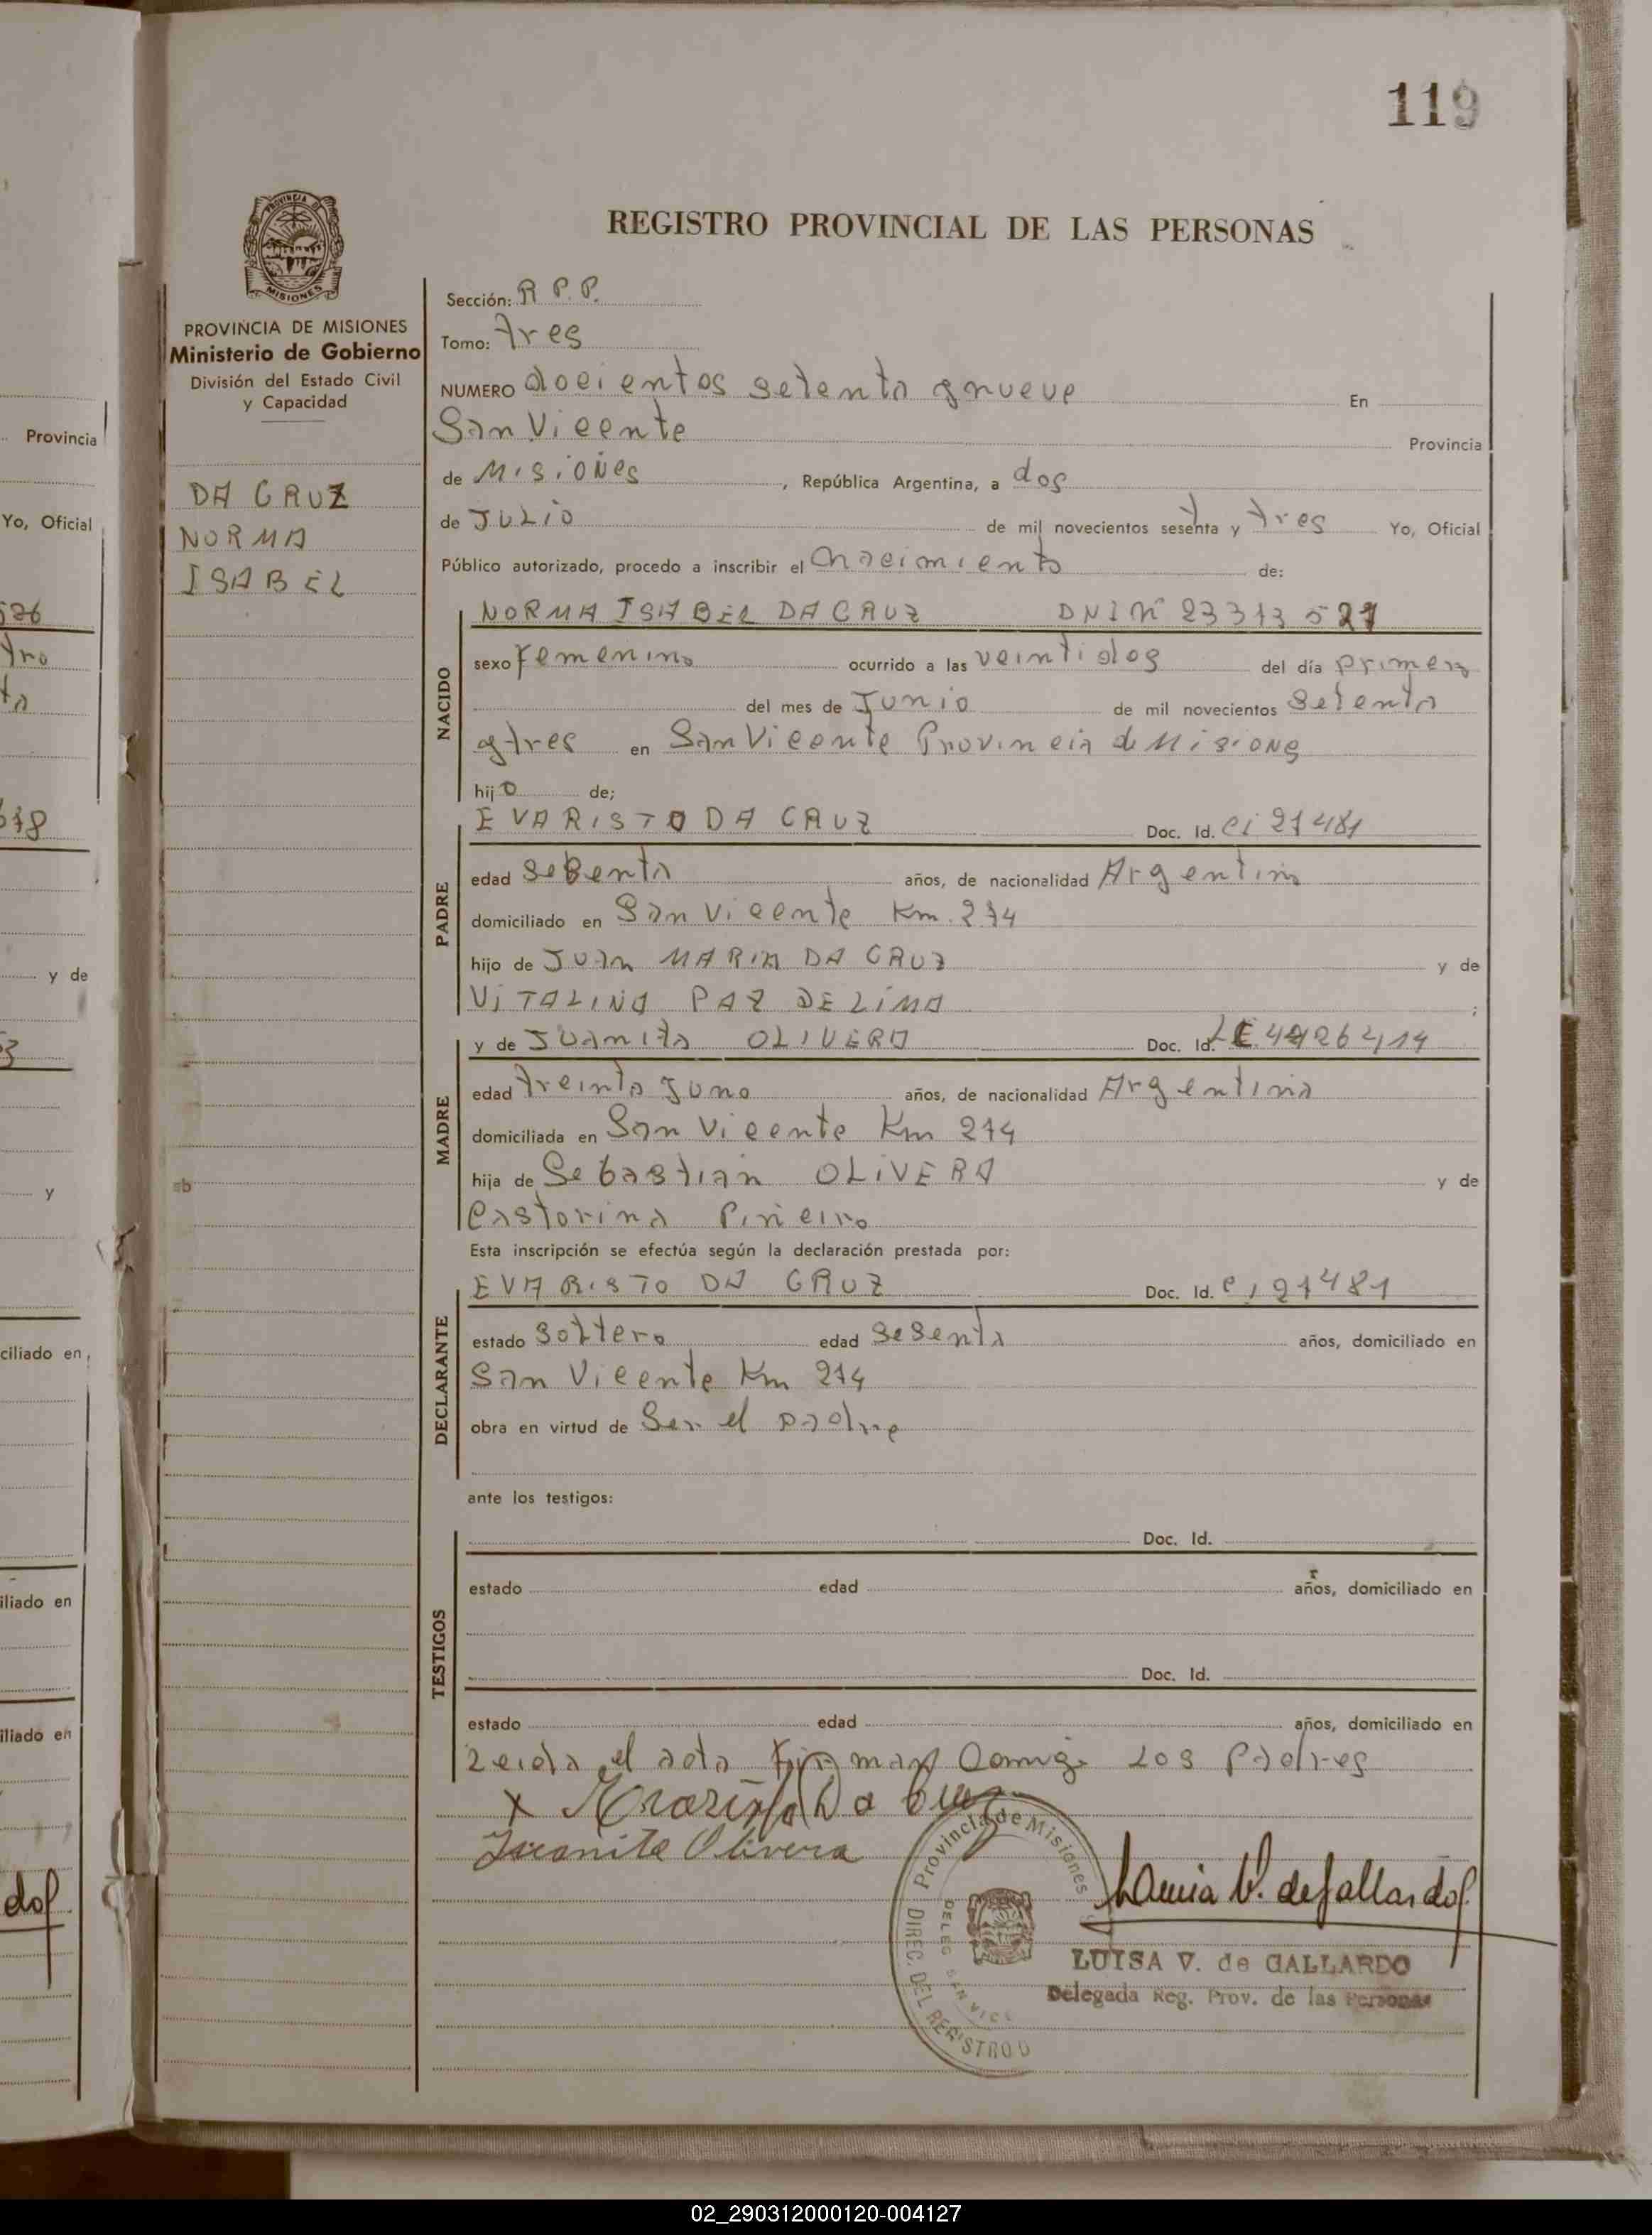 119
REGISTRO PROVINCIAL DE LAS PERSONAS
PROVINCIA DE MISIONES
Ministerio de Gobierno
División del Estado Civil
y Capacidad
DA CRUZ
NORMA
ISABEL
Sección: R P.P.
Tomo: tres
NUMERO docientos setenta y nueve En
San Vicente Provincia
de Misiones, República Argentina, a dos
de JULIO de mil novecientos sesenta y tres Yo, Oficial
Público autorizado, procedo a inscribir el nacimiento de:
NACIDO
NORMA ISABEL DA CRUZ DNI Nº
sexo femenino ocurrido a las veintidos del día primero
del mes de Junio de mil novecientos setenta
y tres en San Vicente Provincia de Misiones
hijo de;
PADRE
EVARISTO DA CRUZ Doc. Id. ci 21481
edad sesenta años, de nacionalidad Argentino
domiciliado en San Vicente Km. 274
hijo de Juan MARIA DA CRUZ y de
ViTALINA PAZ DE LIMA ;
MADRE
y de Juanita OLIVERA Doc. Id.
edad treinta y uno años, de nacionalidad Argentina
domiciliada en San Vicente Km 274
hija de Sebastian OLIVERA y de
Castorina Piñeiro
Esta inscripción se efectúa según la declaración prestada por:
DECLARANTE
EVARISTO DA CRUZ Doc. Id. ci 21481
estado soltero edad sesenta años, domiciliado en
San Vicente Km 274
obra en virtud de Ser el padre
ante los testigos:
TESTIGOS
Doc. Id.
estado edad años, domiciliado en
Doc. Id.
estado edad años, domiciliado en
Leida el acta firman Conmigo Los Padres
x Da Cruz
Juanita Olivera
Provincia de Misiones
DIREC. DEL REGISTRO D
DELEG SAN VICE
Luisa V. de Gallardo
LUISA V. de GALLARDO
Delegada Reg. Prov. de las Personas
Provincia
Yo, Oficial
y de
y
ciliado en,
iliado en
iliado en
02_290312000120-004127